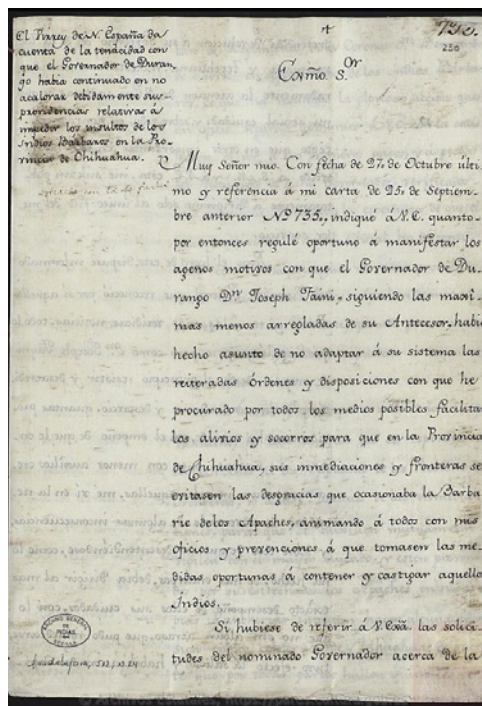 735.
230
El Virrey de N. España da
cuenta de la tenacidad con
que el Governador de Duran-
go habia continuado en no
acalorar debidamente sus
providencias relativas á
impedir los insultos de los
Indios Barbaros en la Pro-
vincia de Chihuahua.
Exmo. Sor.
Muy Señor mio. Con fecha de 27. de Octubre ulti-
mo y referencia á mi carta de 25. de Septiem-
bre anterior Nº 735., indiqué á V.E. quanto
por entonces regulé oportuno á manifestar los
agenos motivos con que el Governador de Du-
rango Dn. Joseph Faini, siguiendo las maxi-
mas menos arregladas de su Antecesor, habi
hecho asunto de no adaptar á su sistema las
reiteradas órdenes y disposiciones con que he
procurado por todos los medios posibles facilita
los alivios y socorros para que en la Provincia
de Chihuahua, sus inmediaciones y fronteras se
evitasen las desgracias que ocasionaba la Barba
rie delos Apaches, animando á todos con mis
oficios y prevenciones á que tomasen las me-
didas oportunas á contener y castigar aquello
Indios.
Si hubiese de referir á V.Exâ. las solici-
tudes del nominado Governador acerca de la
ARCHIVO GENERAL
DE
INDIAS
SEVILLA
Guadalajara, 512,